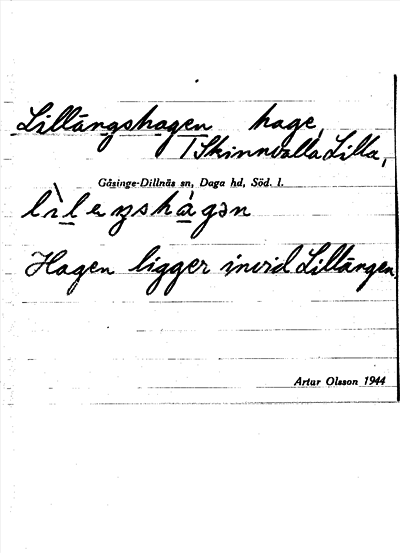 Lillängshagen hage,
/Skinnvalla Lilla,
Gåsinge-Dillnäs sn, Daga hd, Söd. l.
lìleŋshágən
Hagen ligger invid Lillängen.
Artur Olsson 1944